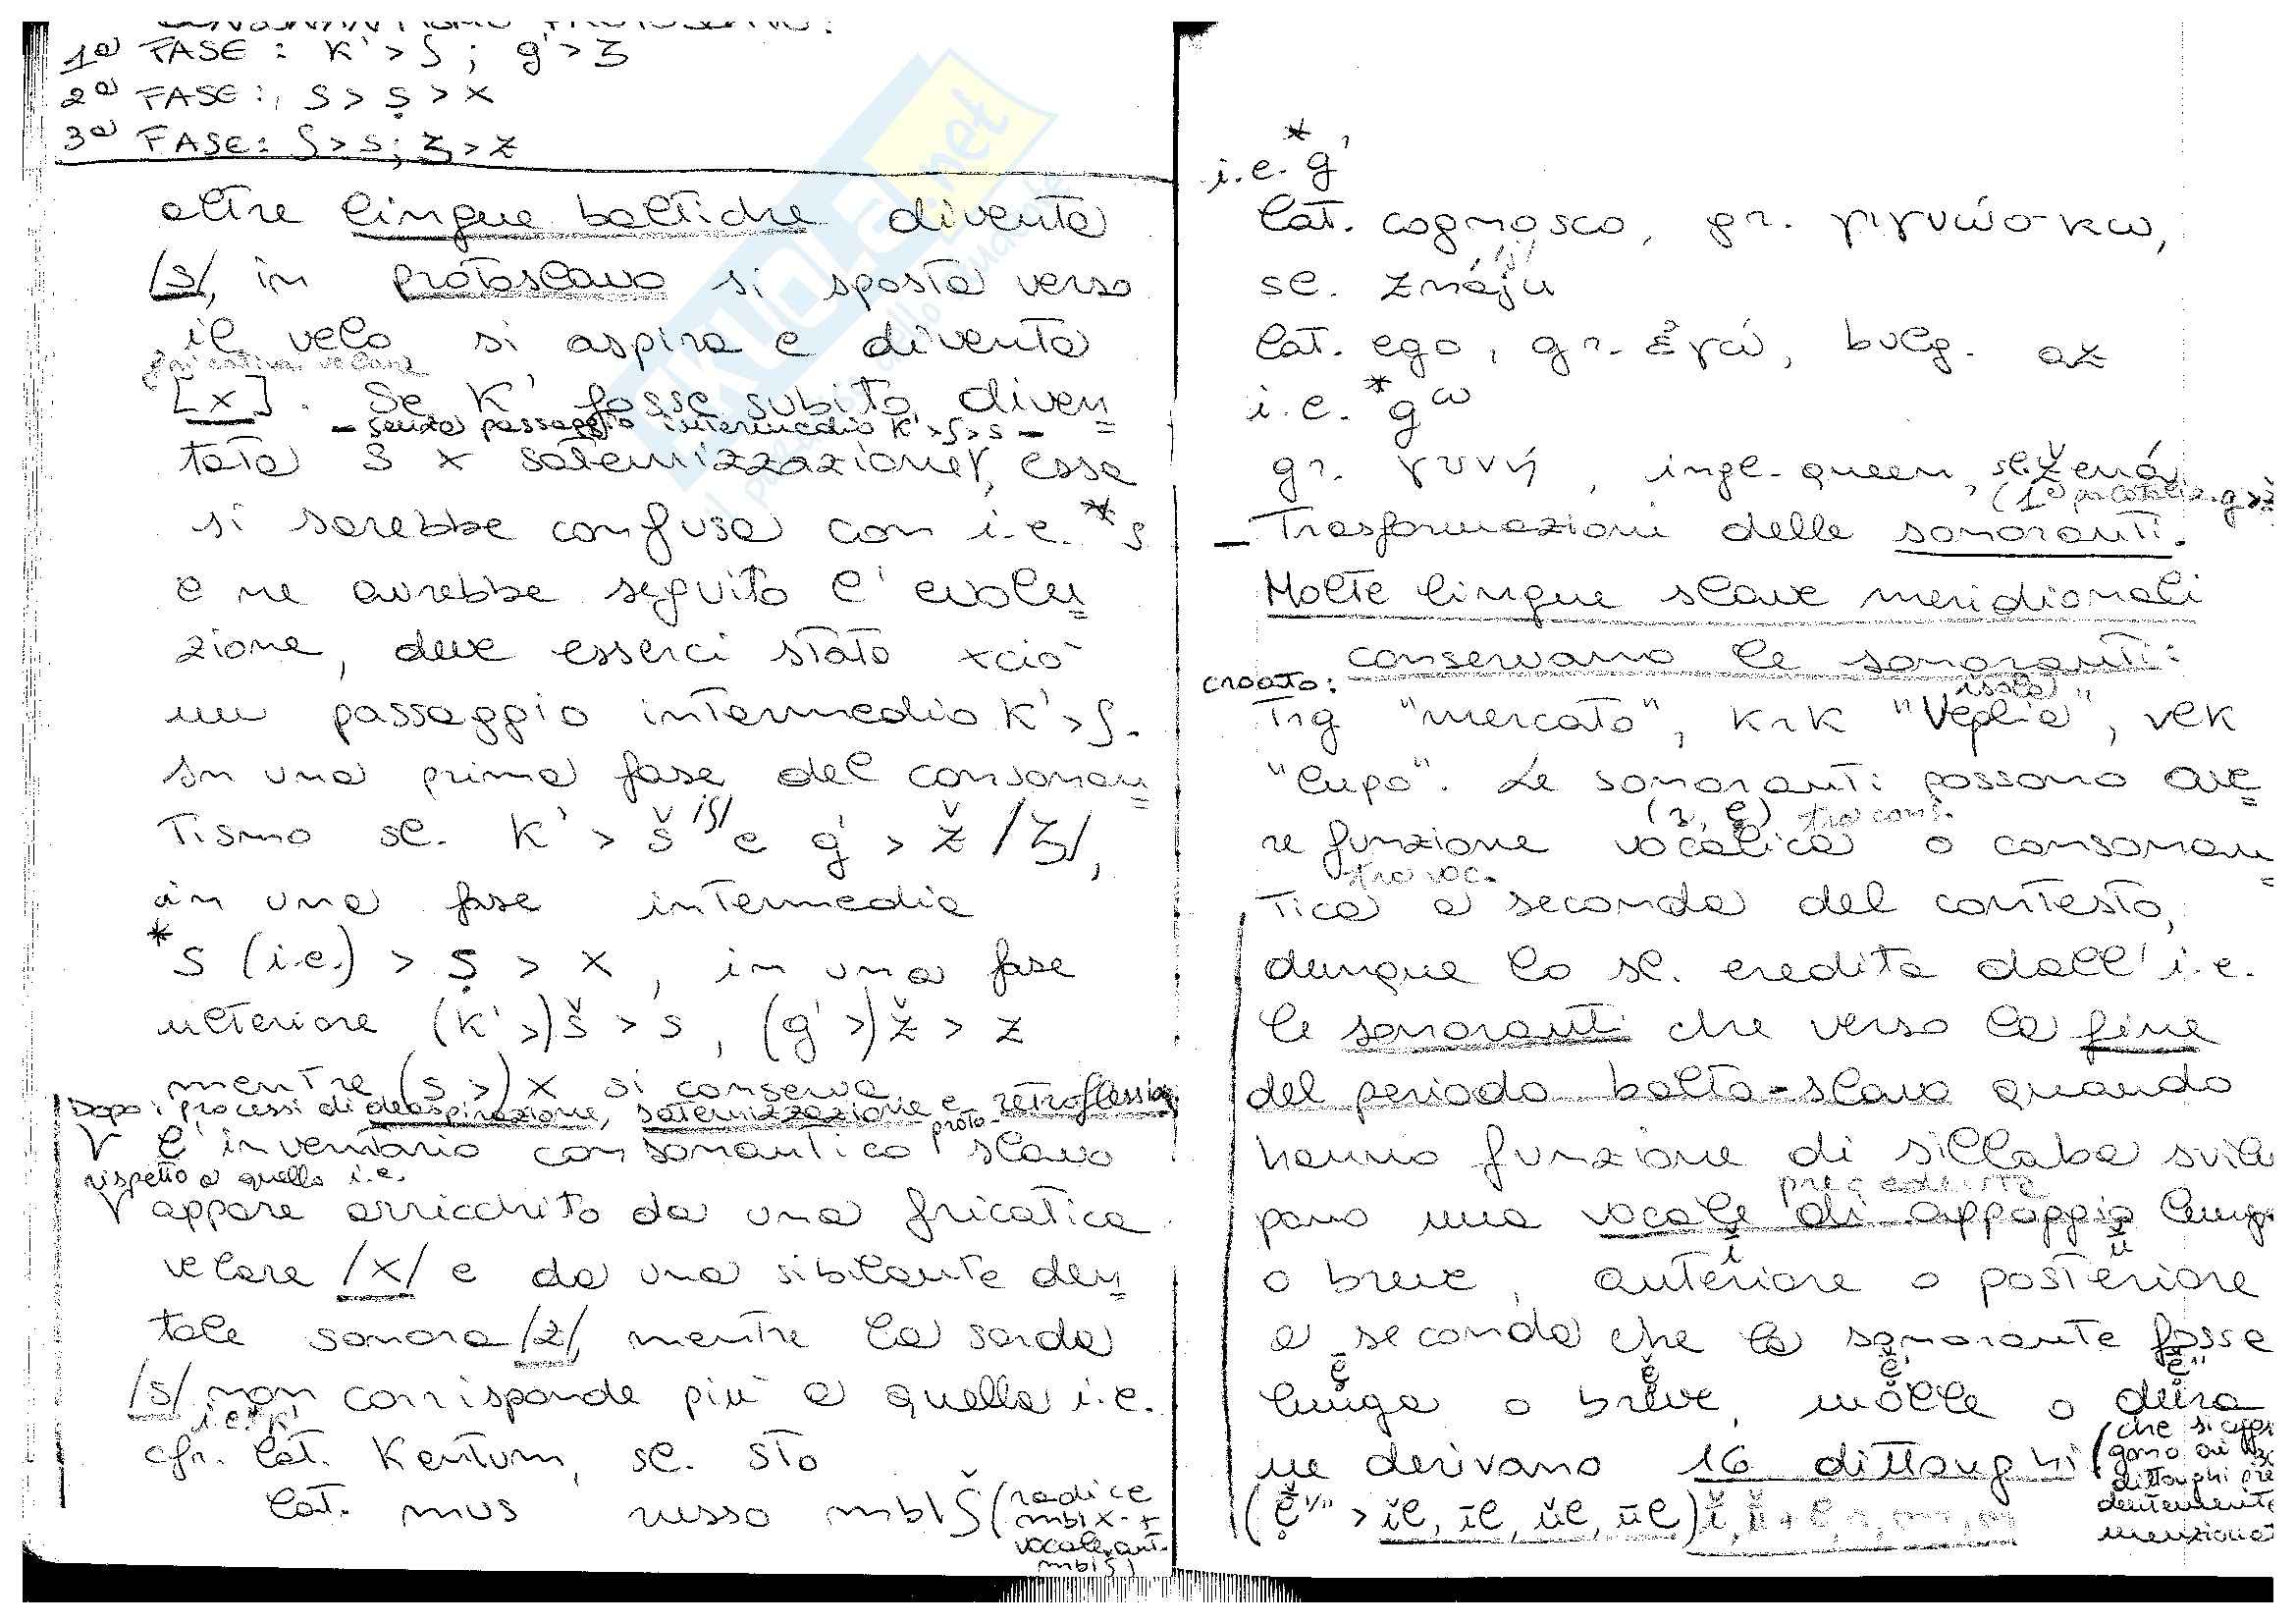 1ª FASE: K' > ʃ ; g' > ʒ
2ª FASE: s > ṣ > x
3ª FASE: ʃ > s; ʒ > z
altre lingue baltiche diventa
/s/, in protoslavo si sposta verso
il velo si aspira e diventa
fricativa velare
[x]. Se K' fosse subito diven
- senza passaggio intermedio K' > ʃ > s -
tata s x satemizzazione, essa
si sarebbe confusa con i.e. *s
e ne avrebbe seguito l'evolu
zione, deve esserci stato xciò
un passaggio intermedio K' > ʃ.
In una prima fase del consonan
tismo sl. K' > š /ʃ/ e g' > ž /ʒ/,
in una fase intermedia
*s (i.e.) > ṣ > x, in una fase
ulteriore (K' >) š > s, (g' >) ž > z
mentre (s >) x si conserva
Dopo i processi di deaspirazione, satemizzazione e retroflessione
l'inventario consonantico proto-slavo
rispetto a quello i.e.
appare arricchito da una fricatica
velare /x/ e da una sibilante den
tale sonora /z/, mentre la sorda
/s/ non corrisponde più a quella i.e.
i.e. *K'
cfr. lat. Kentum, sl. sto
lat. mus russo mbIʃ (radice
mbIx- +
vocale ant.
mbIʃ)
i.e. *g'
lat. cognosco, gr. γιγνώσκω,
sl. znáju
/j/
lat. ego, gr. ἐγώ, bulg. az
i.e. *gω
gr. γυνή, ingl. queen, sl. žená
(1ª palatalizz. g > ž
- Trasformazioni delle sonoranti.
Molte lingue slave meridionali
conservano le sonoranti:
croato:
isola
Trg "mercato", KrK "Veglia", vlk
"lupo". Le sonoranti possono ave
(r, l) tra cons.
re funzione vocalica o consonan
tra voc.
tica a seconda del contesto,
dunque lo sl. eredita dall'i.e.
le sonoranti che verso la fine
del periodo balto-slavo quando
hanno funzione di sillaba svilu
precedente
pano una vocale di appoggio lunga
o breve, anteriore ĭ o posteriore ŭ
a seconda che la sonorante fosse
lunga o breve, molle o dura
ne derivano 16 dittonghi
(che si
gono ai
dittonghi pre
dentemente
menziona
> ĭl, īl, ŭl, ūl) ĭ, ŭ + l, r, m, n